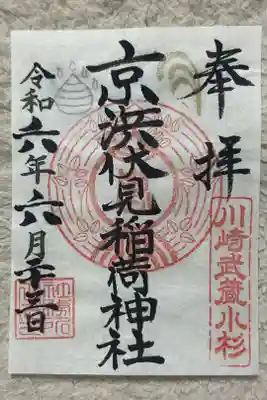 奉拝
川崎武蔵小杉
京浜伏見稲荷神社
令和六年六月十三日